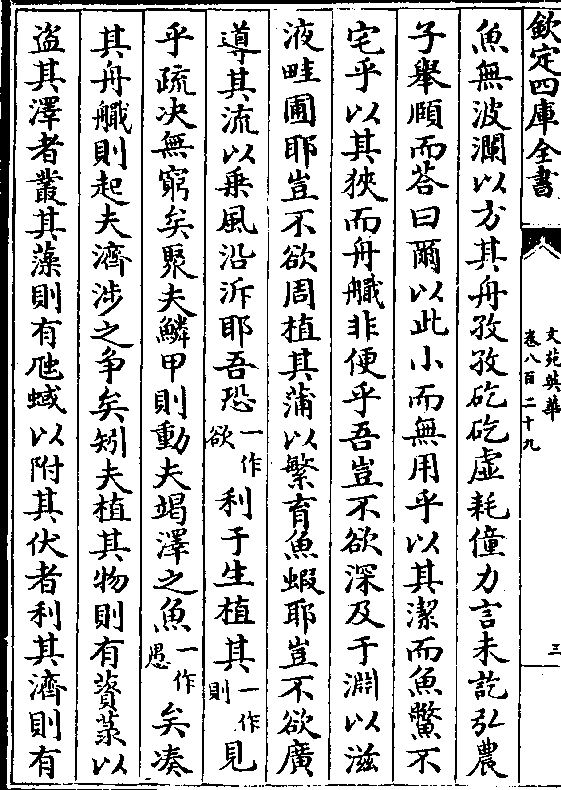 欽定四庫全書
文苑英華
卷八百二十九
三
魚無波瀾以方其舟孜孜矻矻虛耗僮力言未訖弘農
子舉頤而荅曰爾以此小而無用乎以其潔而魚鱉不
宅乎以其狹而舟艥非便乎吾豈不欲深及于淵以滋
液畦圃耶豈不欲周植其蒲以繁育魚蝦耶豈不欲廣
導其流以乗風沿泝耶吾恐一作欲利于生植其一作則見
乎疏决無窮矣聚夫鱗甲則動夫竭澤之魚一作愚矣凑
其舟艥則起夫濟涉之争矣矧夫植其物則有薋菉以
盗其澤者叢其藻則有虺蜮以附其伏者利其濟則有